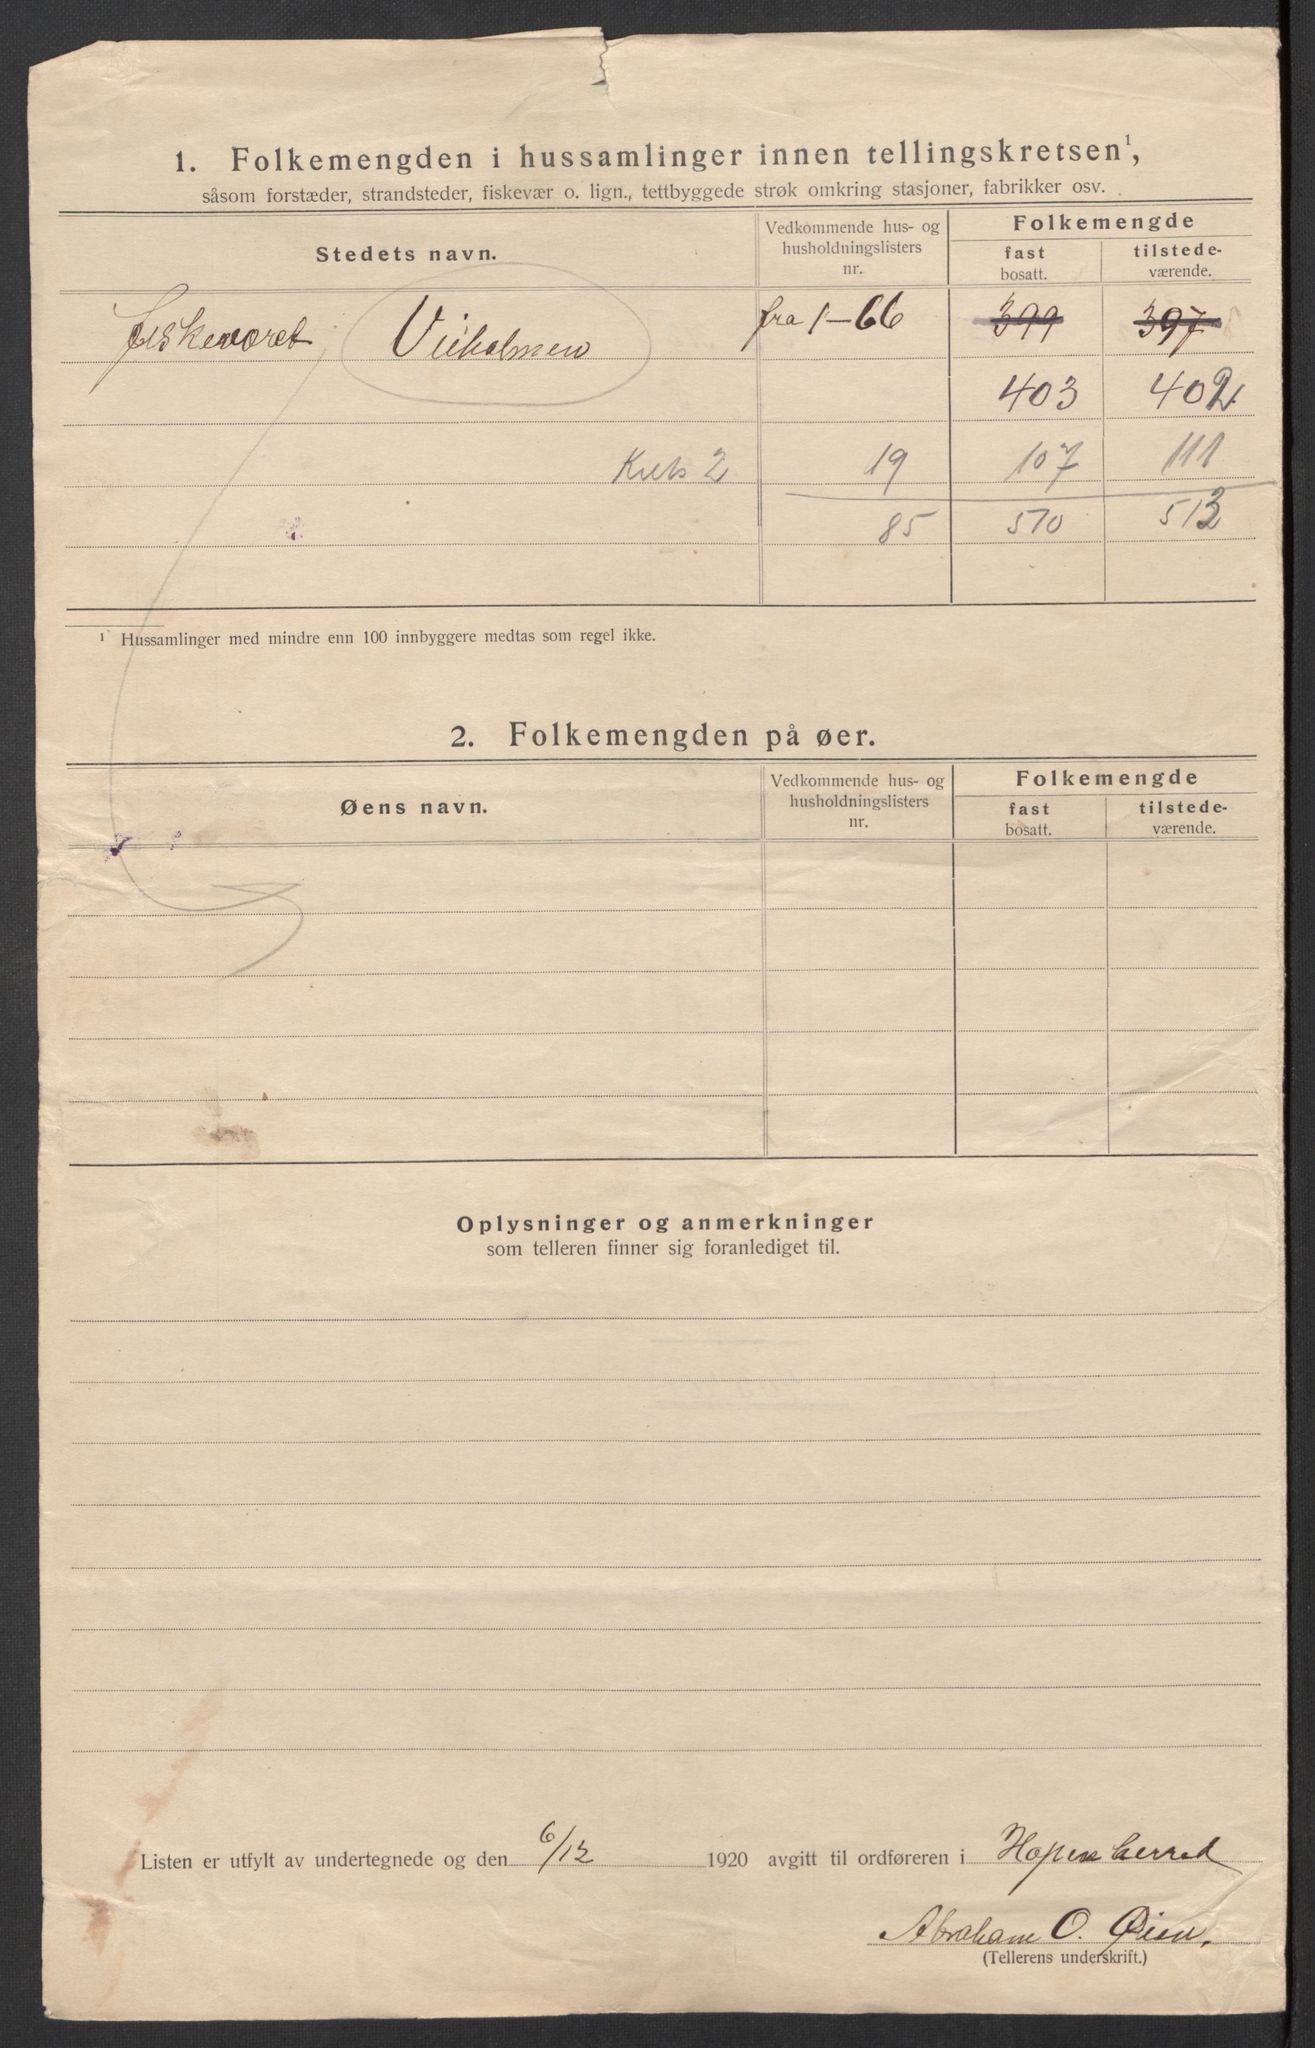 1. Folkemengden i hussamlinger innen tellingskretsen¹,
såsom forstæder, strandsteder, fiskevær o. lign., tettbyggede strøk omkring stasjoner, fabrikker osv.
Stedets navn.
Vedkommende hus- og husholdningslisters nr.
Folkemengde
fast bosatt.
tilstede-værende.
fiskeværet Veiholmen fra 1-66 399 397
403 402
Krets 2 19 107 111
85 510 513
¹ Hussamlinger med mindre enn 100 innbyggere medtas som regel ikke.
2. Folkemengden på øer.
Øens navn.
Vedkommende hus- og husholdningslisters nr.
Folkemengde
fast bosatt.
tilstede-værende.
Oplysninger og anmerkninger
som telleren finner sig foranlediget til.
Listen er utfylt av undertegnede og den 6/12 1920 avgitt til ordføreren i Hopen herred
Abraham O. Øien.
(Tellerens underskrift.)